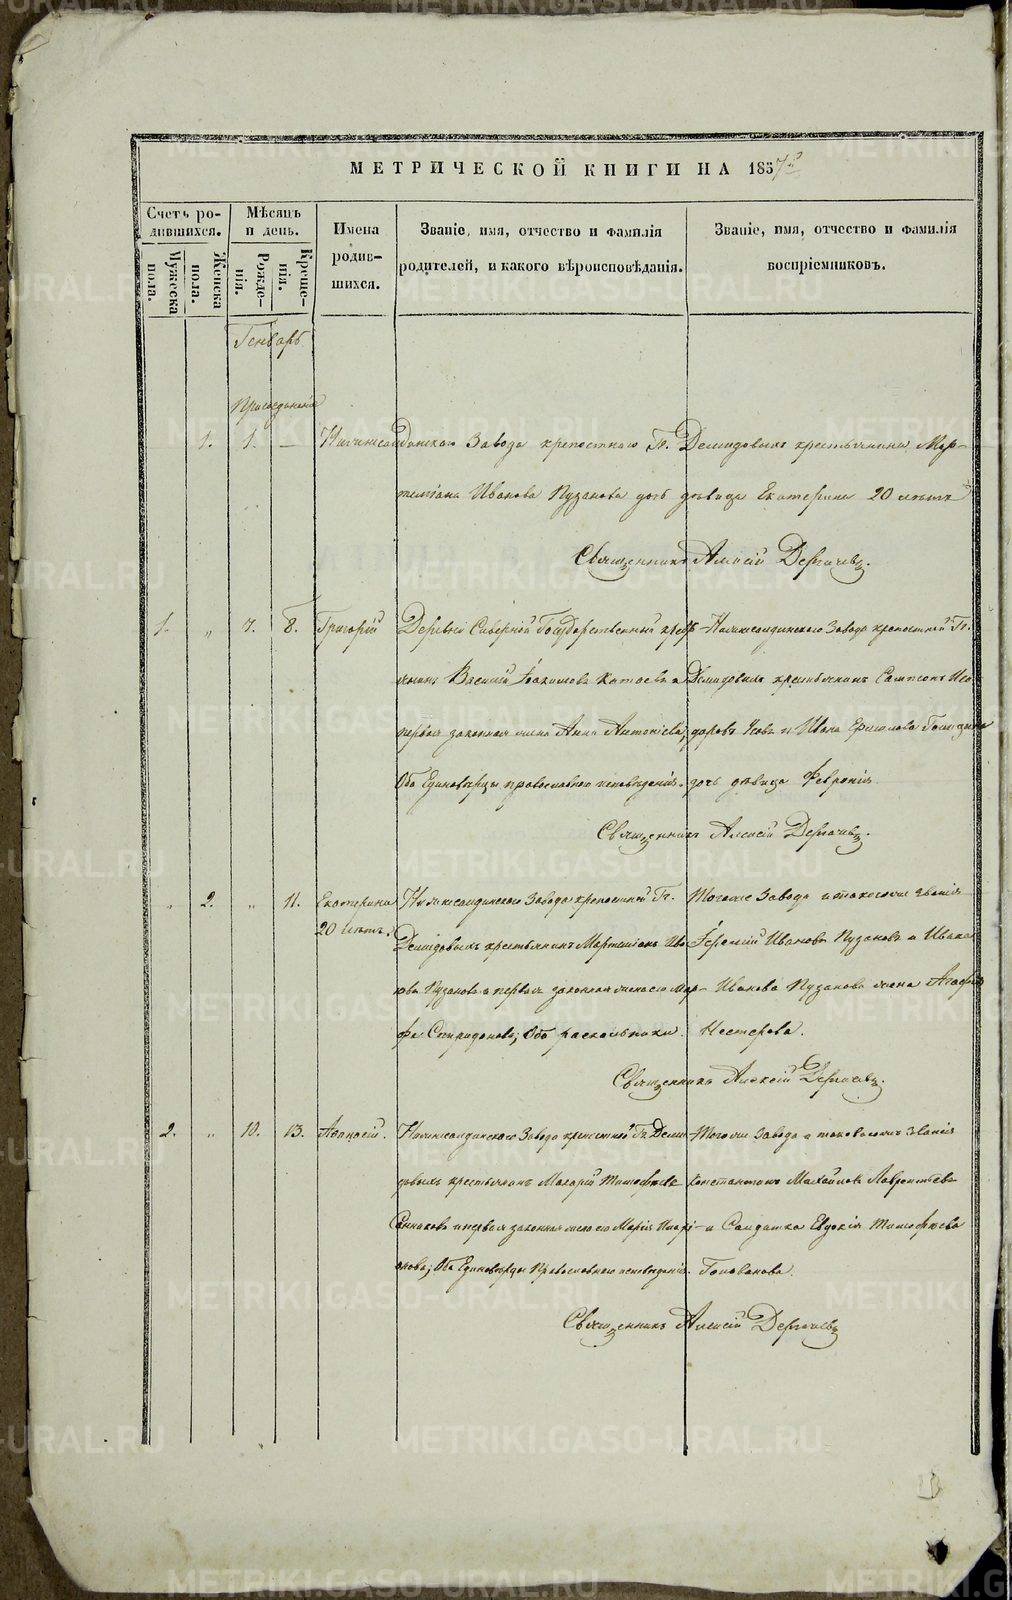 МЕТРИЧЕСКОЙ КНИГИ НА 1857й
Счетъ ро-
дившихся.
Мужеска
пола.
Женска
пола.
Мѣсяцъ
и день.
Рожде-
нія.
Креще-
нія.
Имена
родив-
шихся.
Званіе, имя, отчество и фамилія
родителей, и какого вѣроисповѣданія.
Званіе, имя, отчество и фамилія
воспріемниковъ.
Генварь
1. 1. —
Завода крепостнаго Гг. Демидовыхъ крестьянина Мар-
Иванова Пузанова дочь девица Екатерина 20 летъ
Священникъ Алексій Дергачевъ.
1. „ 7. 8. Григорій
Деревни Северной Государственный крест-
Василій Катаевъ и
первая законная жена Анна Антонiева;
Оба Единоверцы православнаго исповеданія.
Завода крепостной Гг.
Демидовыхъ крестьянинъ Сампсонъ Иси-
доровъ и Ивана
дочь девица Февронія
Священникъ Алексій Дергачевъ.
„ 2. „ 11. Екатерина
20 летъ.
Завода крепостной Гг.
Демидовыхъ крестьянинъ Ива-
новъ Пузановъ и первая законная жена его Мар-
фа Спиридонова; Оба раскольники.
Тогоже Завода и такогоже званія
Іеремій Ивановъ Пузановъ и Ивана
Иванова Пузанова жена Агафья
Нестерова.
Священникъ Алексій Дергачевъ.
2. „ 10. 13. Афанасій.
Завода крепостной Гг. Деми-
довыхъ крестьянинъ Макарій Тимофеевъ
и первая законная жена его Марія
Оба Единоверцы Православнаго исповеданія.
Тогоже Завода и таковагожъ званія
Константинъ Михайловъ Лаврентьевъ
и Солдатка Евдокія Тимофеева
Голованова.
Священникъ Алексій Дергачевъ
METRIKI.GASO-URAL.RU